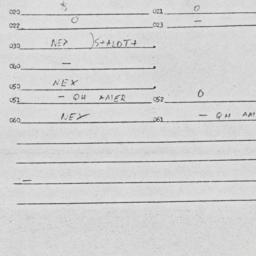 020 021 0
022 0 023 —
030 NEX
040 —
050 NEX
051 — QH AMER 052 0
060 NEX 061 — QH AM
—